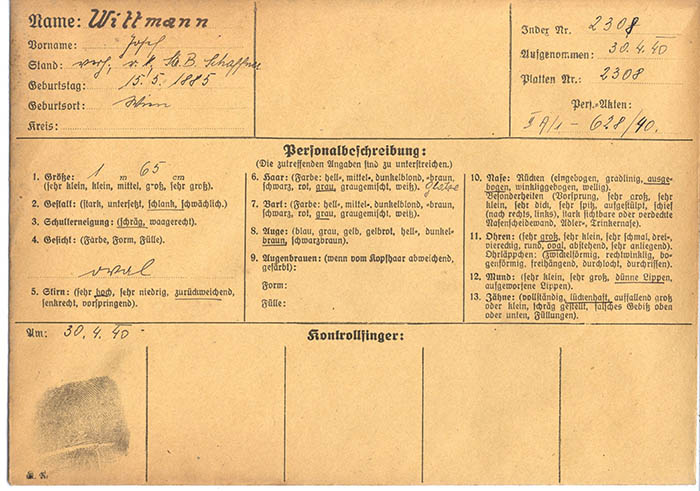 Name: Wittmann
Vorname: Josef
Stand: verh. r.k. St.B. Schaffner
Geburtstag: 15.5.1885
Geburtsort: Wien
Kreis:
Index Nr. 2308
Aufgenommen: 30.4.40
Platten Nr.: 2308
Pers.-Akten:
628/40.
Personalbeschreibung:
(Die zutreffenden Angaben sind zu unterstreichen.)
1. Größe: 1 m 65 cm
(sehr klein, klein, mittel, groß, sehr groß).
2. Gestalt: (stark, untersetzt, schlank, schwächlich.)
3. Schulterneigung: (schräg, waagerecht.)
4. Gesicht: (Farbe, Form, Fülle).
oval
5. Stirn: (sehr hoch, sehr niedrig, zurückweichend,
senkrecht, vorspringend).
6. Haar: (Farbe: hell-, mittel-, dunkelblond, -braun,
schwarz, rot, grau, graugemischt, weiß). Glatze
7. Bart: (Farbe: hell-, mittel-, dunkelblond, -braun,
schwarz, rot, grau, graugemischt, weiß).
8. Auge: (blau, grau, gelb, gelbrot, hell-, dunkel-
braun, schwarzbraun).
9. Augenbrauen: (wenn vom Kopfhaar abweichend,
gefärbt):
Form:
Fülle:
10. Nase: Rücken (eingebogen, gradlinig, ausge-
bogen, winkliggebogen, wellig).
Besonderheiten (Vorsprung, sehr groß, sehr
klein, sehr dick, sehr spitz, aufgestülpt, schief
(nach rechts, links), stark sichtbare oder verdeckte
Nasenscheidewand, Adler-, Trinkernase).
11. Ohren: (sehr groß, sehr klein, sehr schmal, drei-,
viereckig, rund, oval, abstehend, sehr anliegend).
Ohrläppchen: (zwickelförmig, rechtwinklig, bo-
genförmig, freihängend, durchlocht, durchrissen).
12. Mund: (sehr klein, sehr groß, dünne Lippen,
aufgeworfene Lippen).
13. Zähne: (vollständig, lückenhaft, auffallend groß
oder klein, schräg gestellt, falsches Gebiß oben
oder unten, Füllungen).
Am: 30.4.40.
Kontrollfinger: